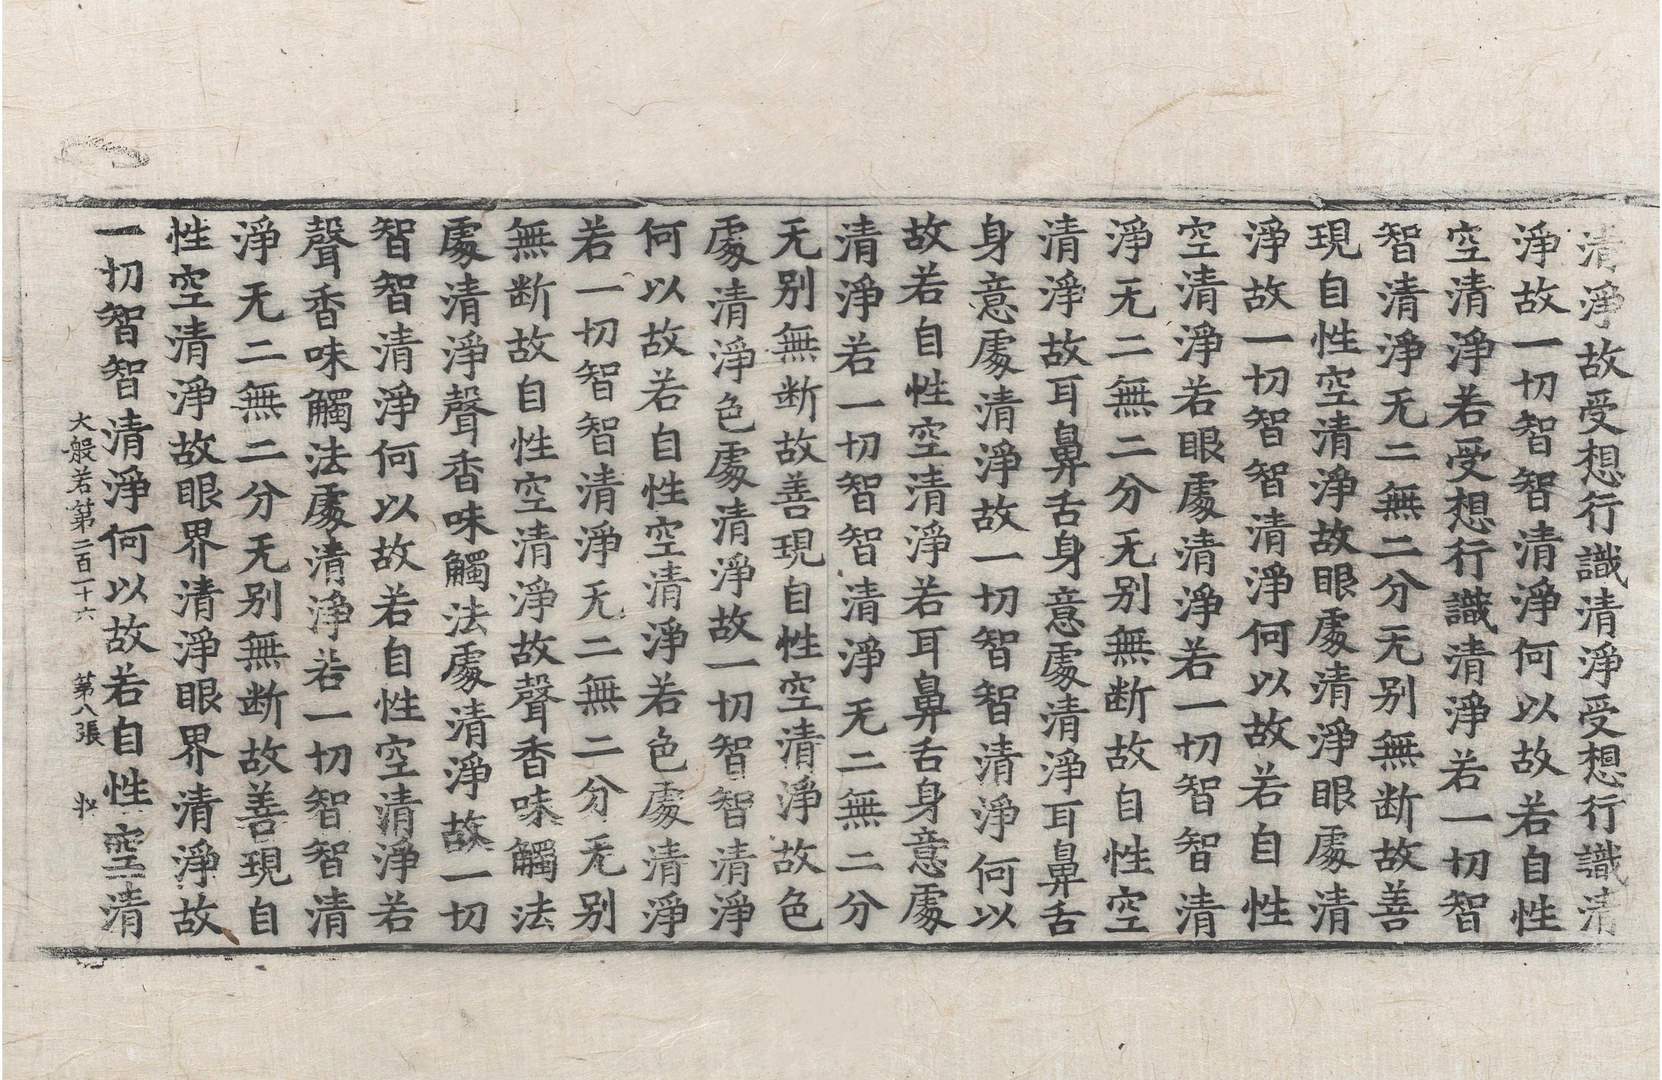 清淨故受想行識清淨受想行識清
淨故一切智智清淨何以故若自性
空清淨若受想行識清淨若一切智
智清淨无二無二分无别無断故善
現自性空清淨故眼處清淨眼處清
淨故一切智智清淨何以故若自性
空清淨若眼處清淨若一切智智清
淨无二無二分无别無断故自性空
清淨故耳鼻舌身意處清淨耳鼻舌
身意處清淨故一切智智清淨何以
故若自性空清淨若耳鼻舌身意處
清淨若一切智智清淨无二無二分
无别無断故善現自性空清淨故色
處清淨色處清淨故一切智智清淨
何以故若自性空清淨若色處清淨
若一切智智清淨无二無二分无别
無断故自性空清淨故聲香味觸法
處清淨聲香味觸法處清淨故一切
智智清淨何以故若自性空清淨若
聲香味觸法處清淨若一切智智清
淨无二無二分无别無断故善現自
性空清淨故眼界清淨眼界清淨故
一切智智清淨何以故若自性空清
大般若第二百一十六 第八張 收